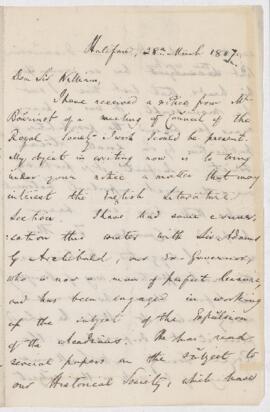 Halifax, 28th March 1887
Dear Sir William,
I have received a notice from Mr
Bourinot of a meeting of Council of the
Royal Society. I wish I could be present.
My object in writing now is to bring
under your notice a matter that may
interest the English Literature
Section. I have had some conver-
sation this winter with Sir Adams
G Archibald, our Ex-Governor,
who is now a man of perfect leisure,
and has been engaged in working
up the subject of the Expulsion
of the Acadians. He has read
several papers on the subject to
our Historical Society, which have